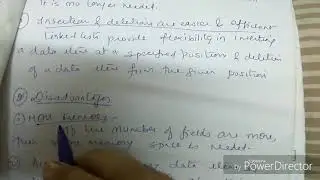 It is no longer needed.
② Insertion & deletion are easier & efficient
Linked lists provide flexibility in inserting
a data item at a specified position & deletion
of a data item from the given position
Disadvantages
① More memory :-
If the number of fields are more,
then more memory space is needed.
② data item
PowerDirector